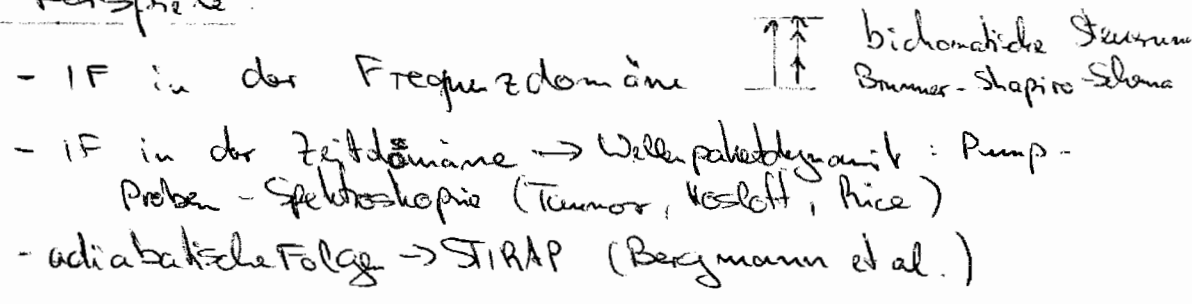 Beispiele:
- IF in der Frequenzdomäne
bichomatische Steuerung
Brumer-Shapiro-Schema
- IF in der Zeitdomäne → Wellenpaketdynamik : Pump-
Proben-Spektroskopie (Tannor, Kosloff, Rice)
- adiabatische Folgen → STIRAP (Bergmann et al.)